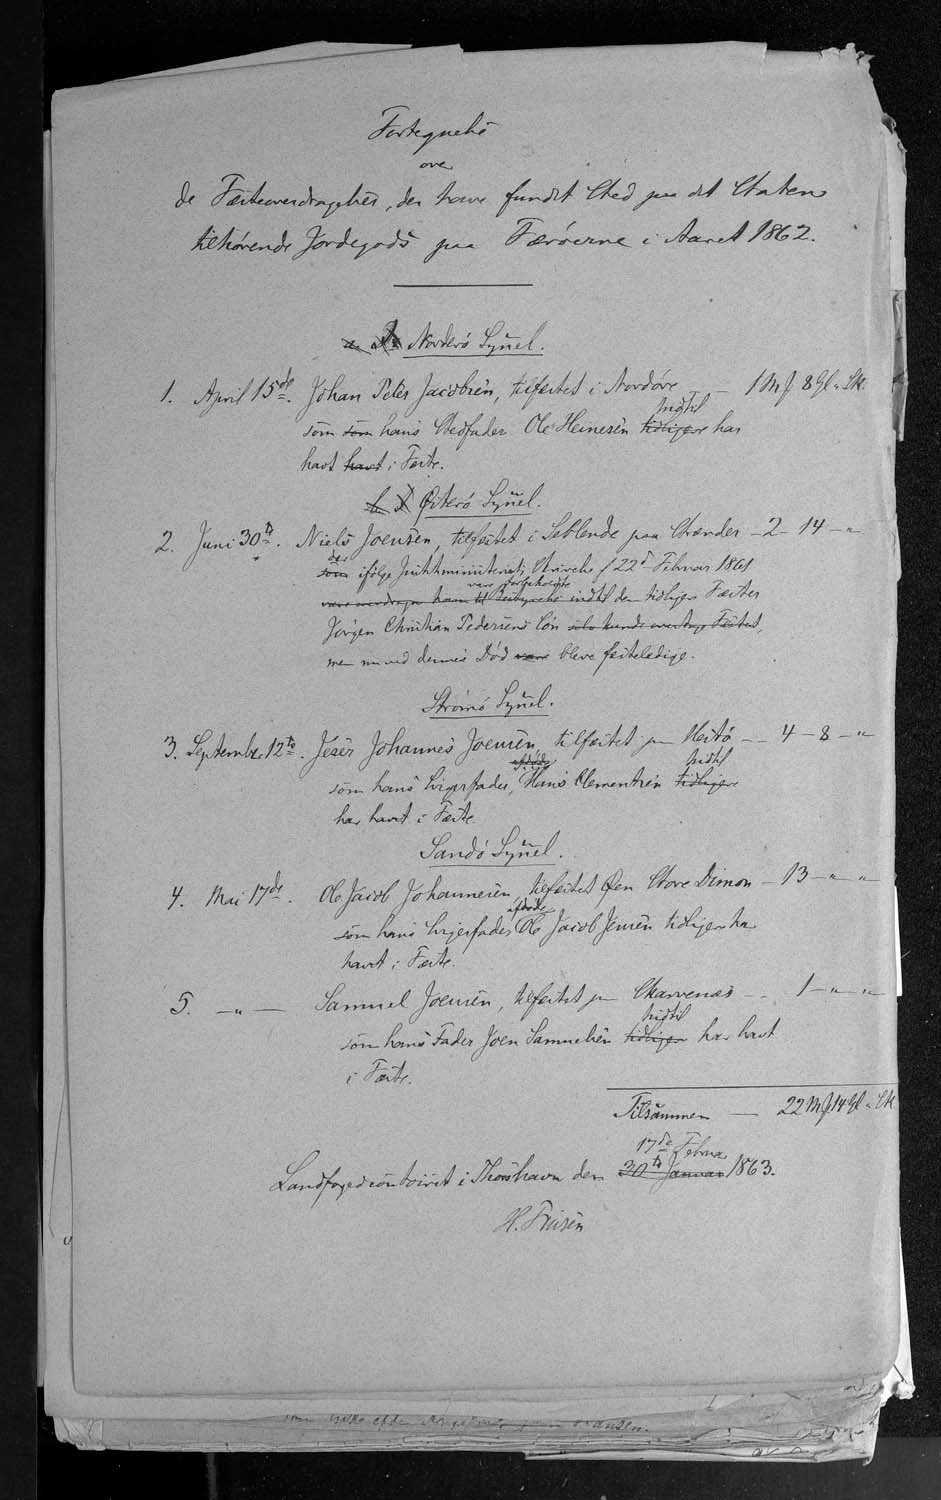 Fortegnelse
over
de Fæsteoverdragelser, der have fundet Sted paa det Staten
tilhørende Jordegods paa Færøerne i Aaret 1862.
Norderø Syssel.
1. April 15de. Johan Peter Jacobsen, tilfæstet i Nordøre — 1 M 8 Gl " Sk
hidtil
som som hans Stedfader Ole Heinesen tidligere har
havt havt i Fæste.
Østerø Syssel.
2. Juni 30te. Niels Joensen, tilfæstet i Selletræ paa Strænder — 2 — 14 — "
der
som ifølge Justitsministeriets Skrivelse f 22de Februar 1861
vare forbeholdte
vare overdragne ham til indtil den tidligere Fæster
Jørgen Christian Pedersens Søn selv kunde overtage Fæstet,
men nu ved dennes Død vare bleve fæsteledige.
Strømø Syssel.
3. September 12te. Jeser Johannes Joensen, tilfæstet paa Hestø — 4 — 8 — "
afdøde hidtil
som hans Svigerfader, Hans Clementsen tidligere
har havt i Fæste.
Sandø Syssel.
4. Mai 17de. Ole Jacob Johannesen, tilfæstet Øen Store Dimon — 13 — " — "
afdøde
som hans Svigerfader Ole Jacob Jensen tidligere har
havt i Fæste.
5. — " — Samuel Joensen, tilfæstet paa Skarvenæs — 1 — " — "
hidtil
som hans Fader Joen Samuelsen tidligere har havt
i Fæste.
Tilsammen — 22 M 14 Gl " Sk
17de Februar
Landfogedcontoiret i Thorshavn den 30te Januar 1863.
H. Friisen